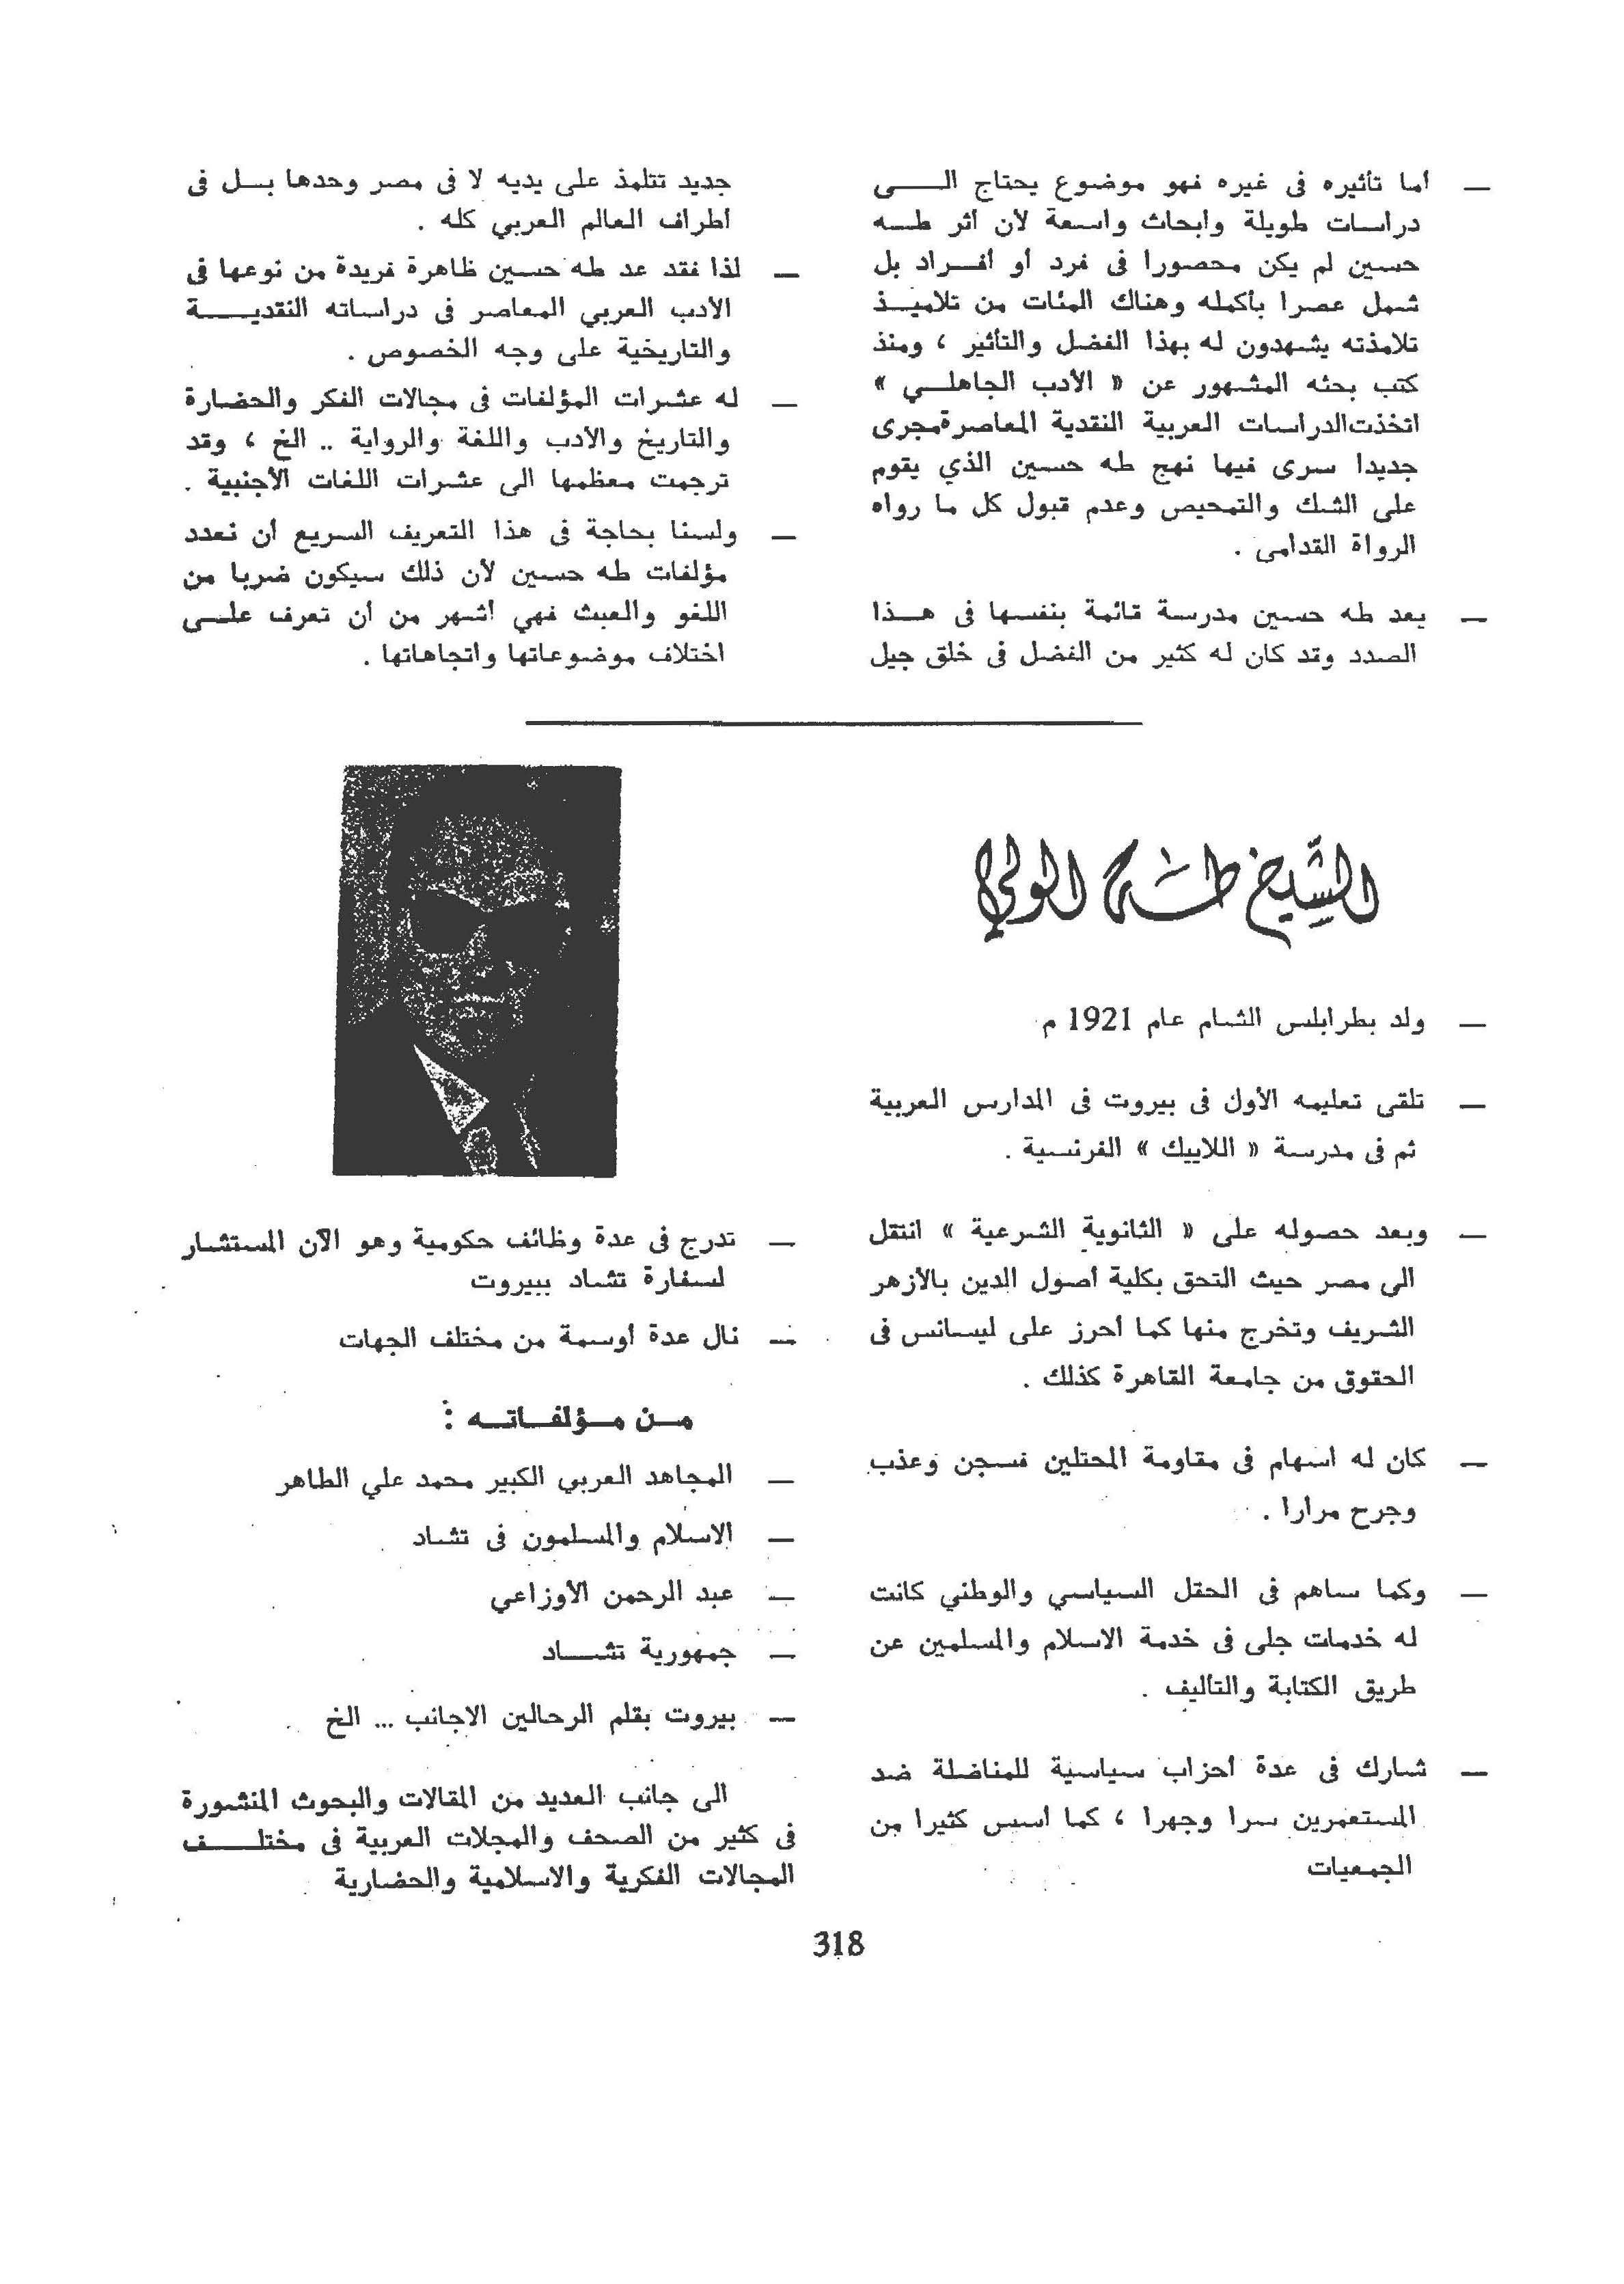 — أما تأثيره فى غيره فهو موضوع يحتاج الـــى
دراسات طويلة وأبحاث واسعة لأن أثر طـــه
حسين لم يكن محصورا فى فرد أو أفـــراد بل
شمل عصرا بأكمله وهناك المئات من تلاميـــذ
تلامذته يشهدون له بهذا الفضل والتأثير ، ومنذ
كتب بحثه المشهور عن « الأدب الجاهلـــي »
اتخذت الدراسات العربية النقدية المعاصرة مجرى
جديدا سرى فيها نهج طه حسين الذي يقوم
على الشك والتمحيص وعدم قبول كل ما رواه
الرواة القدامى .
— يعد طه حسين مدرسة قائمة بنفسها فى هـــذا
الصدد وقد كان له كثير من الفضل فى خلق جيل
جديد تتلمذ على يديه لا فى مصر وحدها بـــل فى
أطراف العالم العربي كله .
— لذا فقد عد طه حسين ظاهرة فريدة من نوعها فى
الأدب العربي المعاصر فى دراساته النقديـــة
والتاريخية على وجه الخصوص .
— له عشرات المؤلفات فى مجالات الفكر والحضارة
والتاريخ والأدب واللغة والرواية .. الخ ، وقد
ترجمت معظمها الى عشرات اللغات الأجنبية .
— ولسنا بحاجة فى هذا التعريف السريع أن نعدد
مؤلفات طه حسين لأن ذلك سيكون ضربا من
اللغو والعبث فهي أشهر من أن تعرف علـــى
اختلاف موضوعاتها واتجاهاتها .
الشيخ طه الولي
— ولد بطرابلس الشام عام 1921 م
— تلقى تعليمه الأول فى بيروت فى المدارس العربية
ثم فى مدرسة « اللاييك » الفرنسية .
— وبعد حصوله على « الثانوية الشرعية » انتقل
الى مصر حيث التحق بكلية أصول الدين بالأزهر
الشريف وتخرج منها كما أحرز على ليسانس فى
الحقوق من جامعة القاهرة كذلك .
— كان له اسهام فى مقاومة المحتلين فسجن وعذب
وجرح مرارا .
— وكما ساهم فى الحقل السياسي والوطني كانت
له خدمات جلى فى خدمة الاسلام والمسلمين عن
طريق الكتابة والتأليف .
— شارك فى عدة أحزاب سياسية للمناضلة ضد
المستعمرين سرا وجهرا ، كما أسس كثيرا من
الجمعيات
— تدرج فى عدة وظائف حكومية وهو الآن المستشار
لسفارة تشاد ببيروت
— نال عدة أوسمة من مختلف الجهات
مـن مـؤلفـاتـه :
— المجاهد العربي الكبير محمد علي الطاهر
— الاسلام والمسلمون فى تشاد
— عبد الرحمن الأوزاعي
— جمهورية تشـــاد
— بيروت بقلم الرحالين الاجانب ... الخ
الى جانب العديد من المقالات والبحوث المنشورة
فى كثير من الصحف والمجلات العربية فى مختلـــف
المجالات الفكرية والاسلامية والحضارية
318